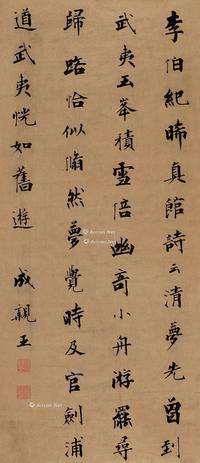 李伯紀晞真館詩云清夢先曾到
武夷玉峯積雪倍幽奇小舟游罷尋
歸路恰似翛然夢覺時及官劍浦
道武夷恍如舊遊 成親王